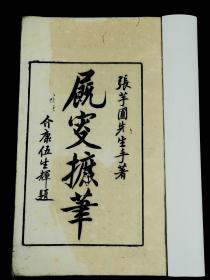 張芋圃先生手著
厩叟摭筆
介康伍生輝題